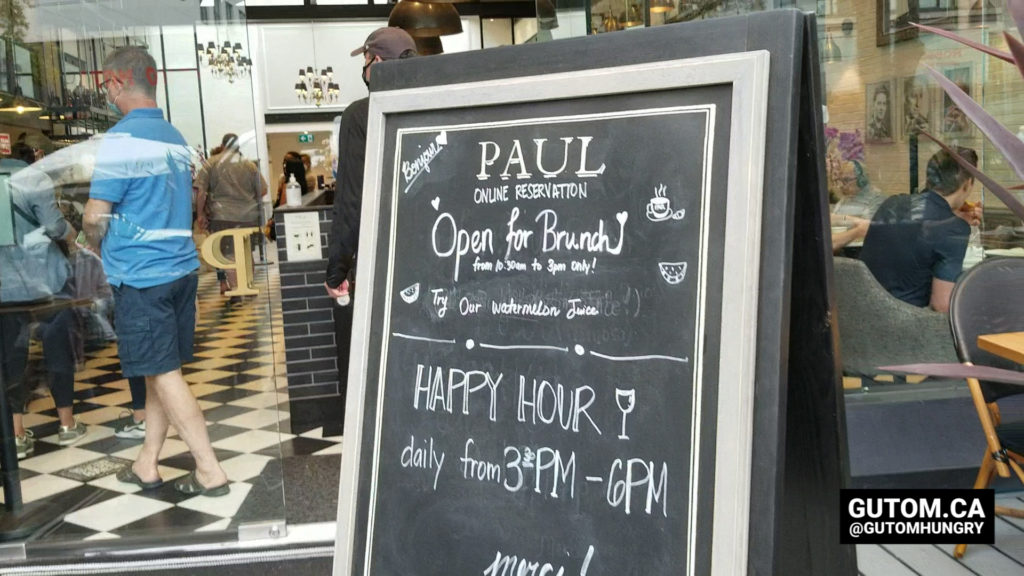 Bonjour
PAUL
ONLINE RESERVATION
Open for Brunch
from 10:30am to 3pm only!
Try Our watermelon Juice
HAPPY HOUR
daily from 3PM - 6PM
merci!
P
GUTOM.CA
@GUTOMHUNGRY